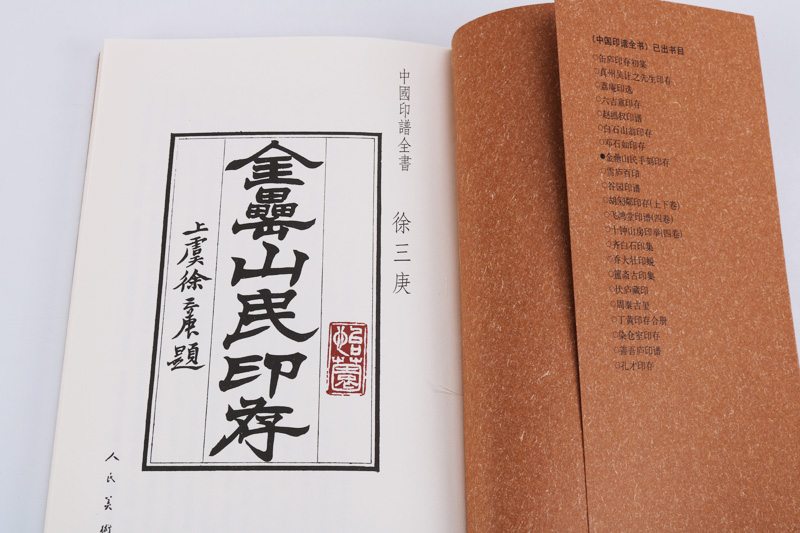 中國印譜全書
徐三庚
金罍山民印存
上虞徐三庚題
人民美術
《中国印谱全书》已出书目
○缶庐印存初集
○真州吴让之先生印存
○六古蕙印存
○赵撝叔印谱
○白石山翁印存
○邓石如印存
●金罍山民手刻印存
○雪庐百印
○谷园印谱
○胡匊鄰印存(上下卷)
○飞鸿堂印谱(四卷)
○十钟山房印举(四卷)
○齐白石印集
○乔大壮印蜕
○匋斋古印集
○伏庐藏印
○周秦古玺
○丁黄印存合册
○染仓室印存
○善吾庐印谱
○孔才印存